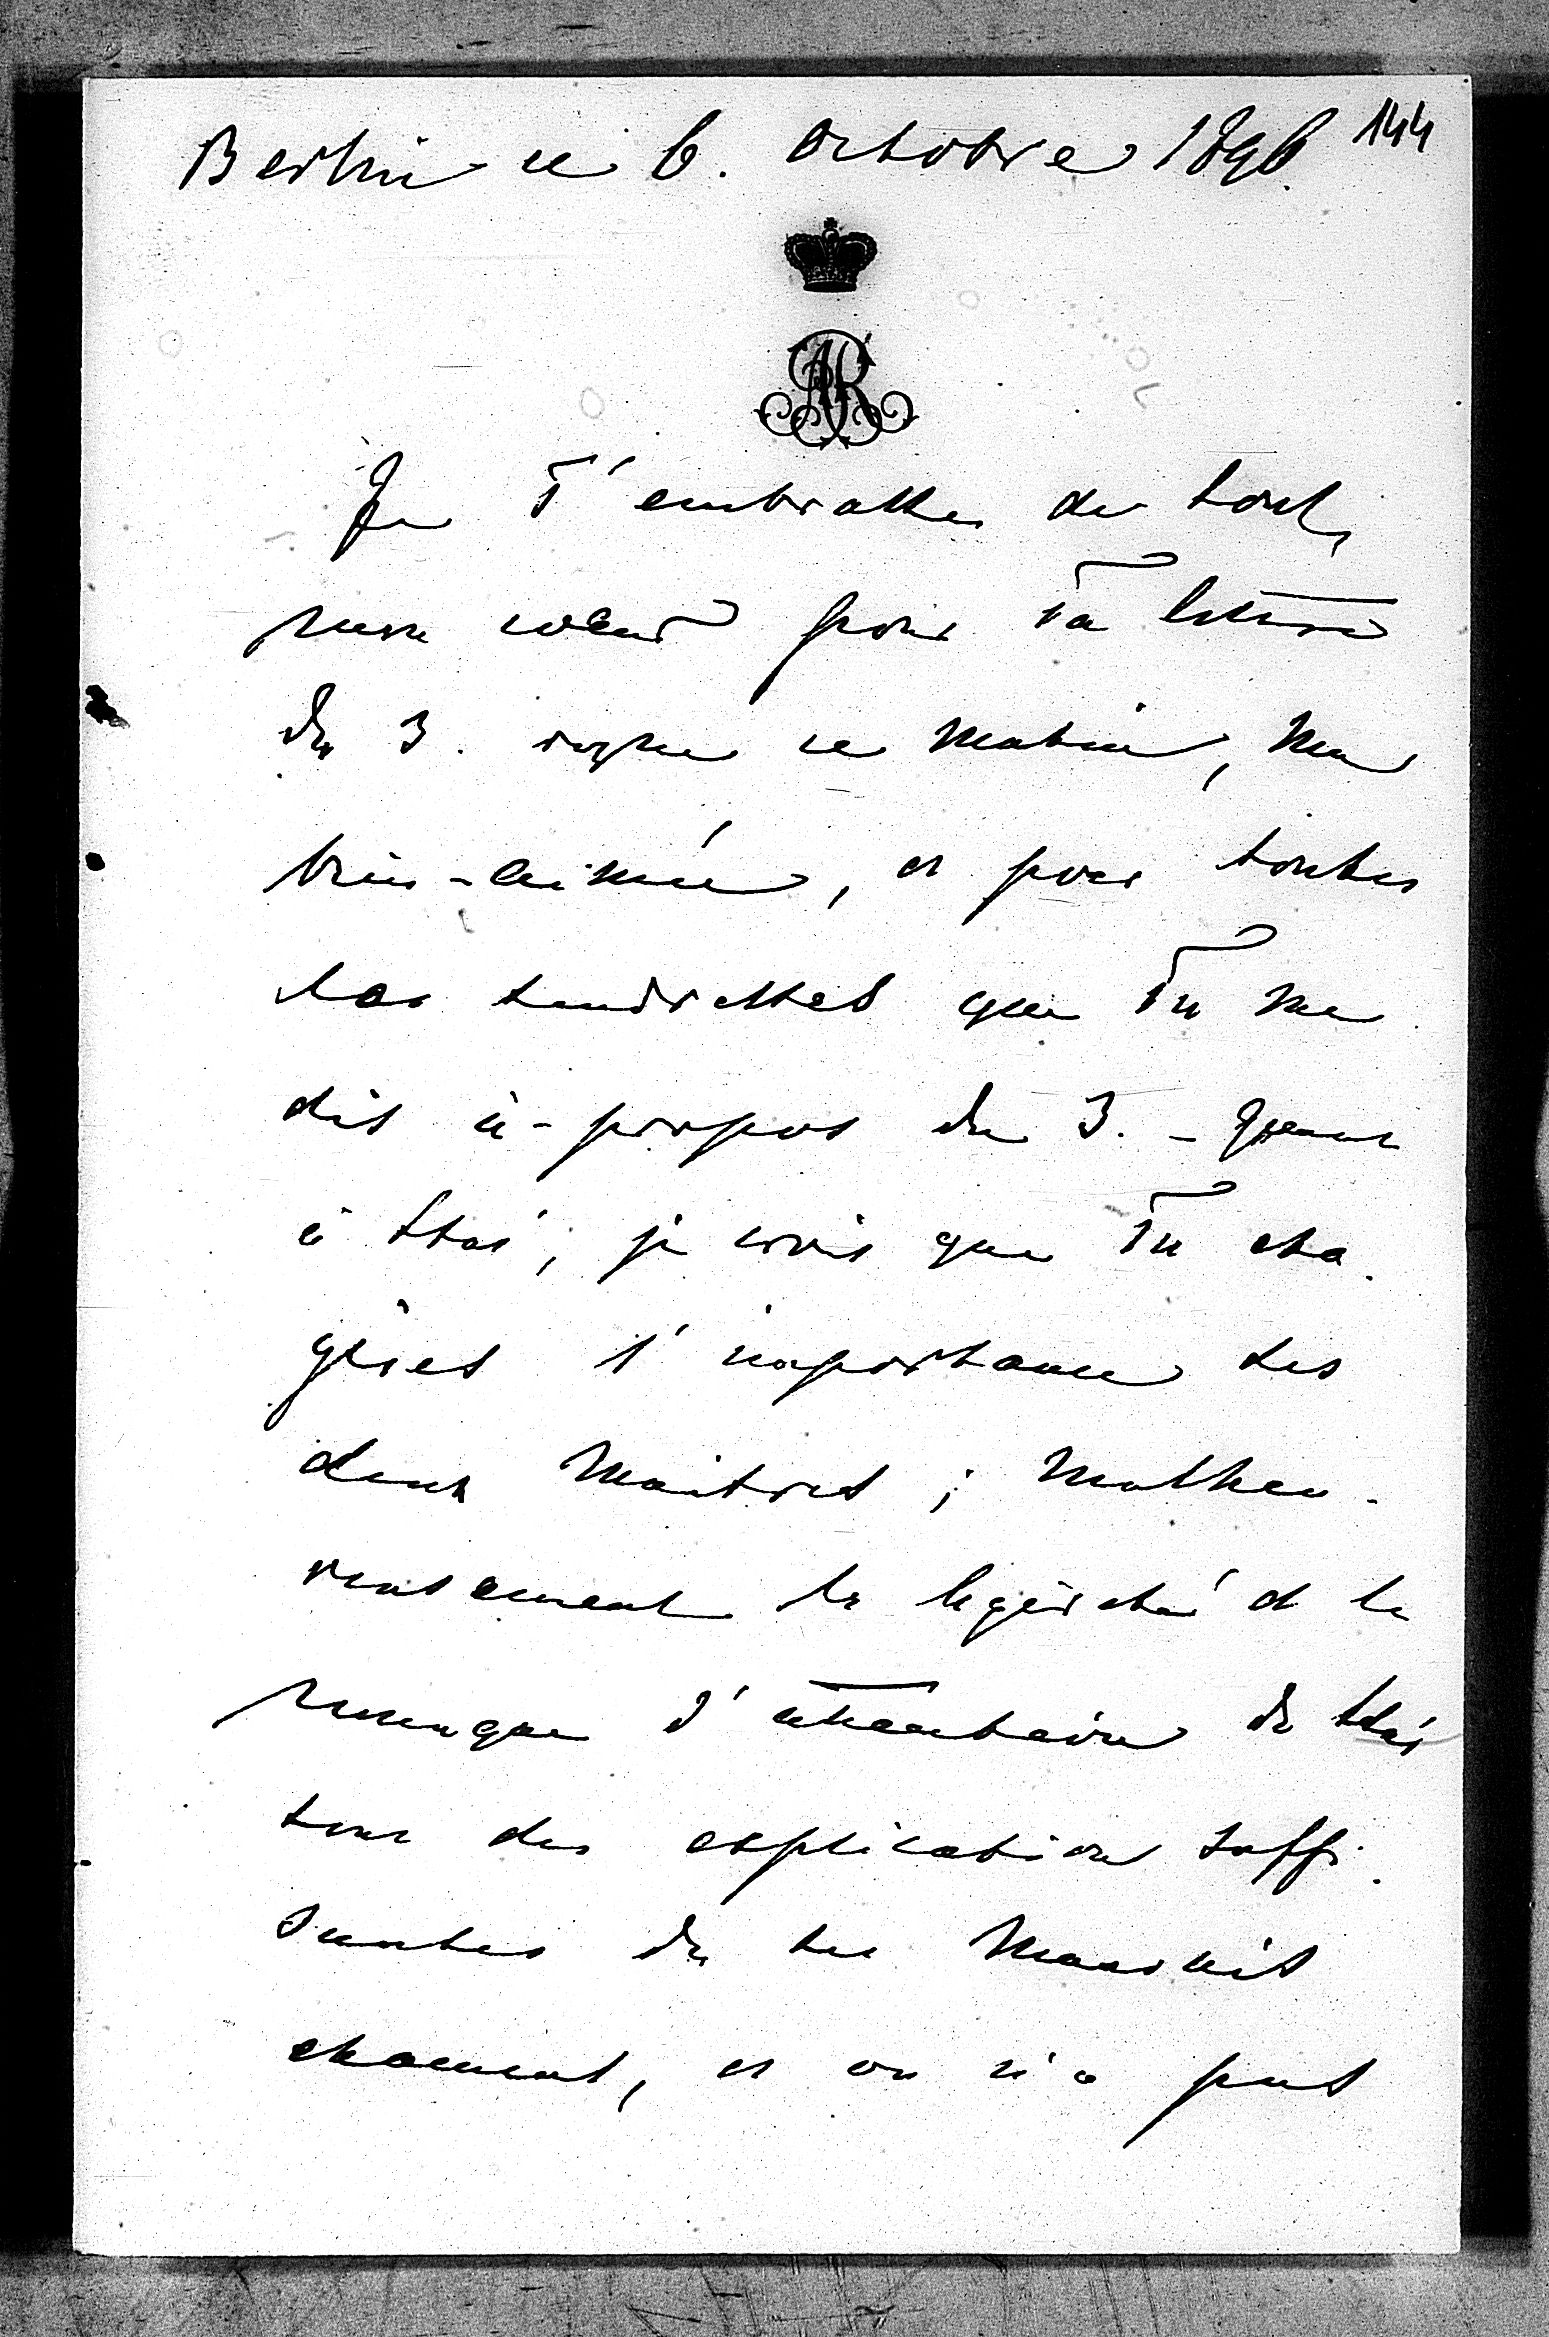 Berlin ce 6. octobre 1896. 144
AR
Je T'embrasse de tout
mon coeur pour Ta lettre
du 3. reçue ce matin, Ma
bien-aimée, et pour toutes
les tendresses que Tu me
dis à-propos du 3. - Quant
à Stas, je crois que Tu exa-
gères l'importance des
deux Maîtres ; Malheu-
reusement la légèreté et le
manque d' de Stas
sont des explications suffi-
santes de ses Mauvais
examens, et on n'a pas